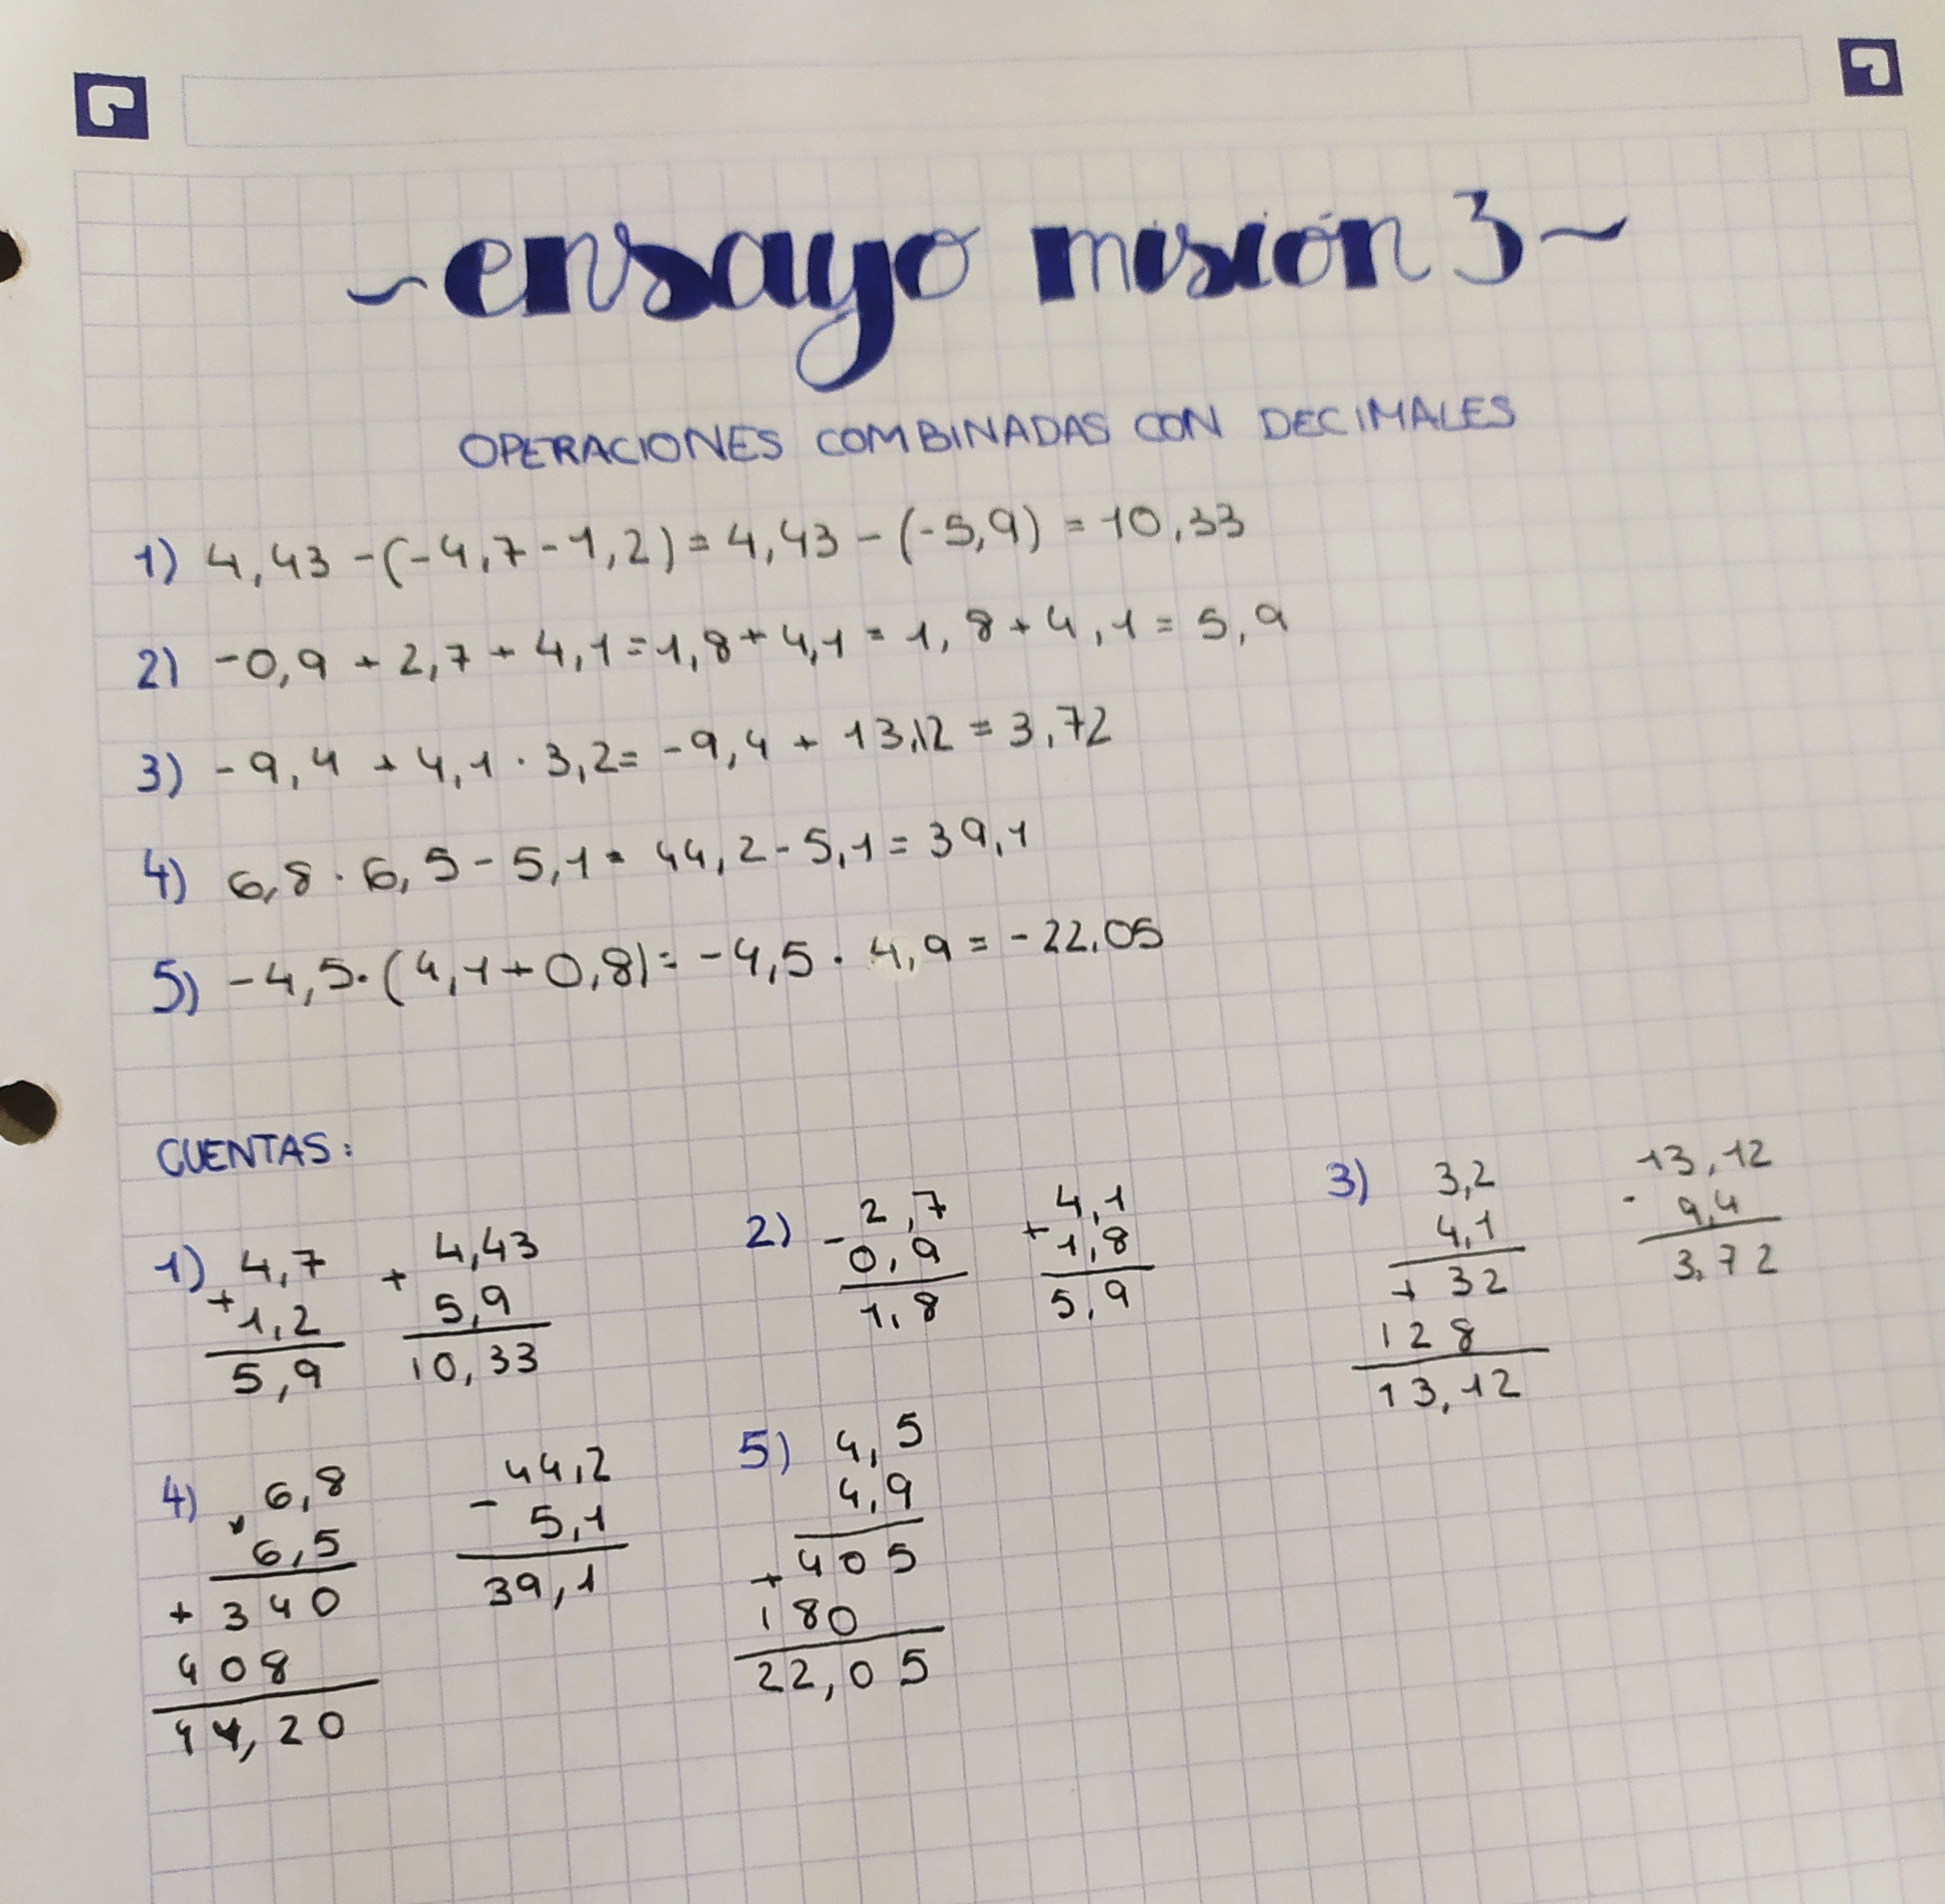 ~ensayo misión 3~
OPERACIONES COMBINADAS CON DECIMALES
1) 4,43 - (-4,7 - 1,2) = 4,43 - (-5,9) = 10,33
2) -0,9 + 2,7 + 4,1 = 1,8 + 4,1 = 1,8 + 4,1 = 5,9
3) -9,4 + 4,1 · 3,2 = -9,4 + 13,12 = 3,72
4) 6,8 · 6,5 - 5,1 = 44,2 - 5,1 = 39,1
5) -4,5 · (4,1 + 0,8) = -4,5 · 4,9 = -22.05
CUENTAS:
1) 4,7
+ 1,2
5,9
4,43
+ 5,9
10,33
2) 2,7
- 0,9
1,8
4,1
+ 1,8
5,9
3) 3,2
4,1
+ 32
128
13,12
13,12
- 9,4
3,72
4) 6,8
x 6,5
+ 340
408
44,20
44,2
- 5,1
39,1
5) 4,5
4,9
+ 405
180
22,05